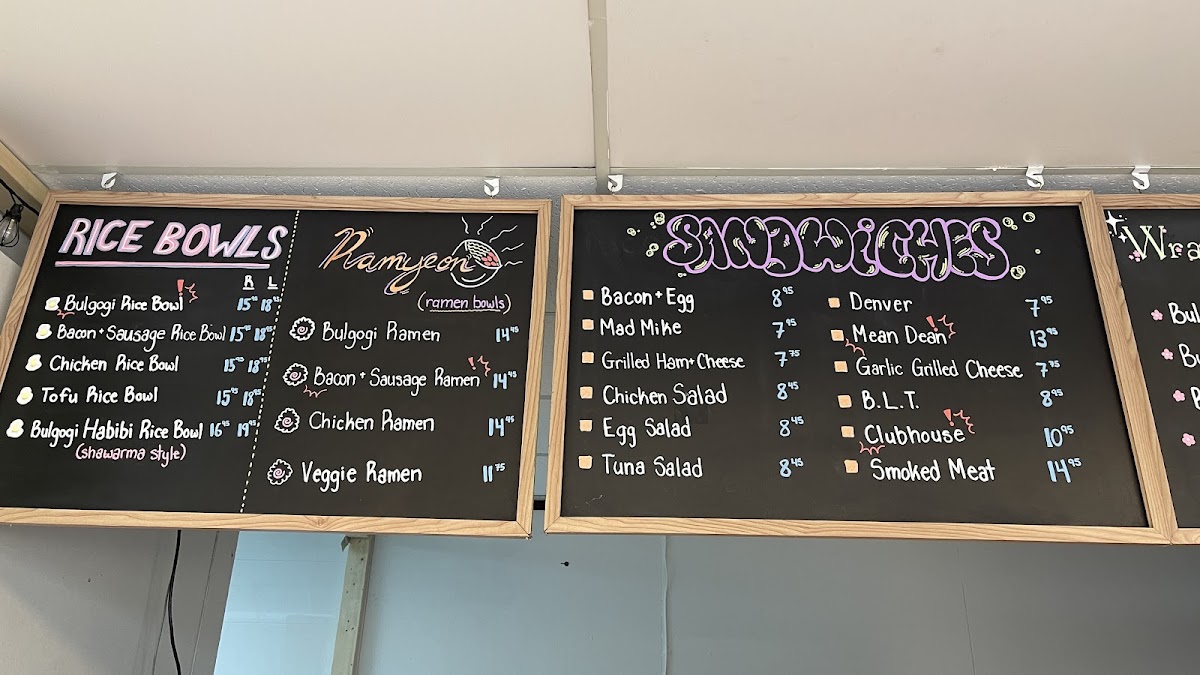 RICE BOWLS
R L
Bulgogi Rice Bowl 15⁹⁵ 18⁹⁵
Bacon + Sausage Rice Bowl 15⁹⁵ 18⁹⁵
Chicken Rice Bowl 15⁹⁵ 18⁹⁵
Tofu Rice Bowl 15⁹⁵ 18⁹⁵
Bulgogi Habibi Rice Bowl 16⁹⁵ 19⁹⁵
(shawarma style)
Ramyeon
(ramen bowls)
Bulgogi Ramen 14⁹⁵
Bacon + Sausage Ramen 14⁹⁵
Chicken Ramen 14⁹⁵
Veggie Ramen 11⁷⁵
SANDWiCHES
Bacon + Egg 8⁹⁵
Mad Mike 7⁹⁵
Grilled Ham + Cheese 7⁷⁵
Chicken Salad 8⁴⁵
Egg Salad 8⁴⁵
Tuna Salad 8⁴⁵
Denver 7⁹⁵
Mean Dean 13⁹⁵
Garlic Grilled Cheese 7⁷⁵
B.L.T. 8⁹⁵
Clubhouse 10⁹⁵
Smoked Meat 14⁹⁵
Wra
Bul
B